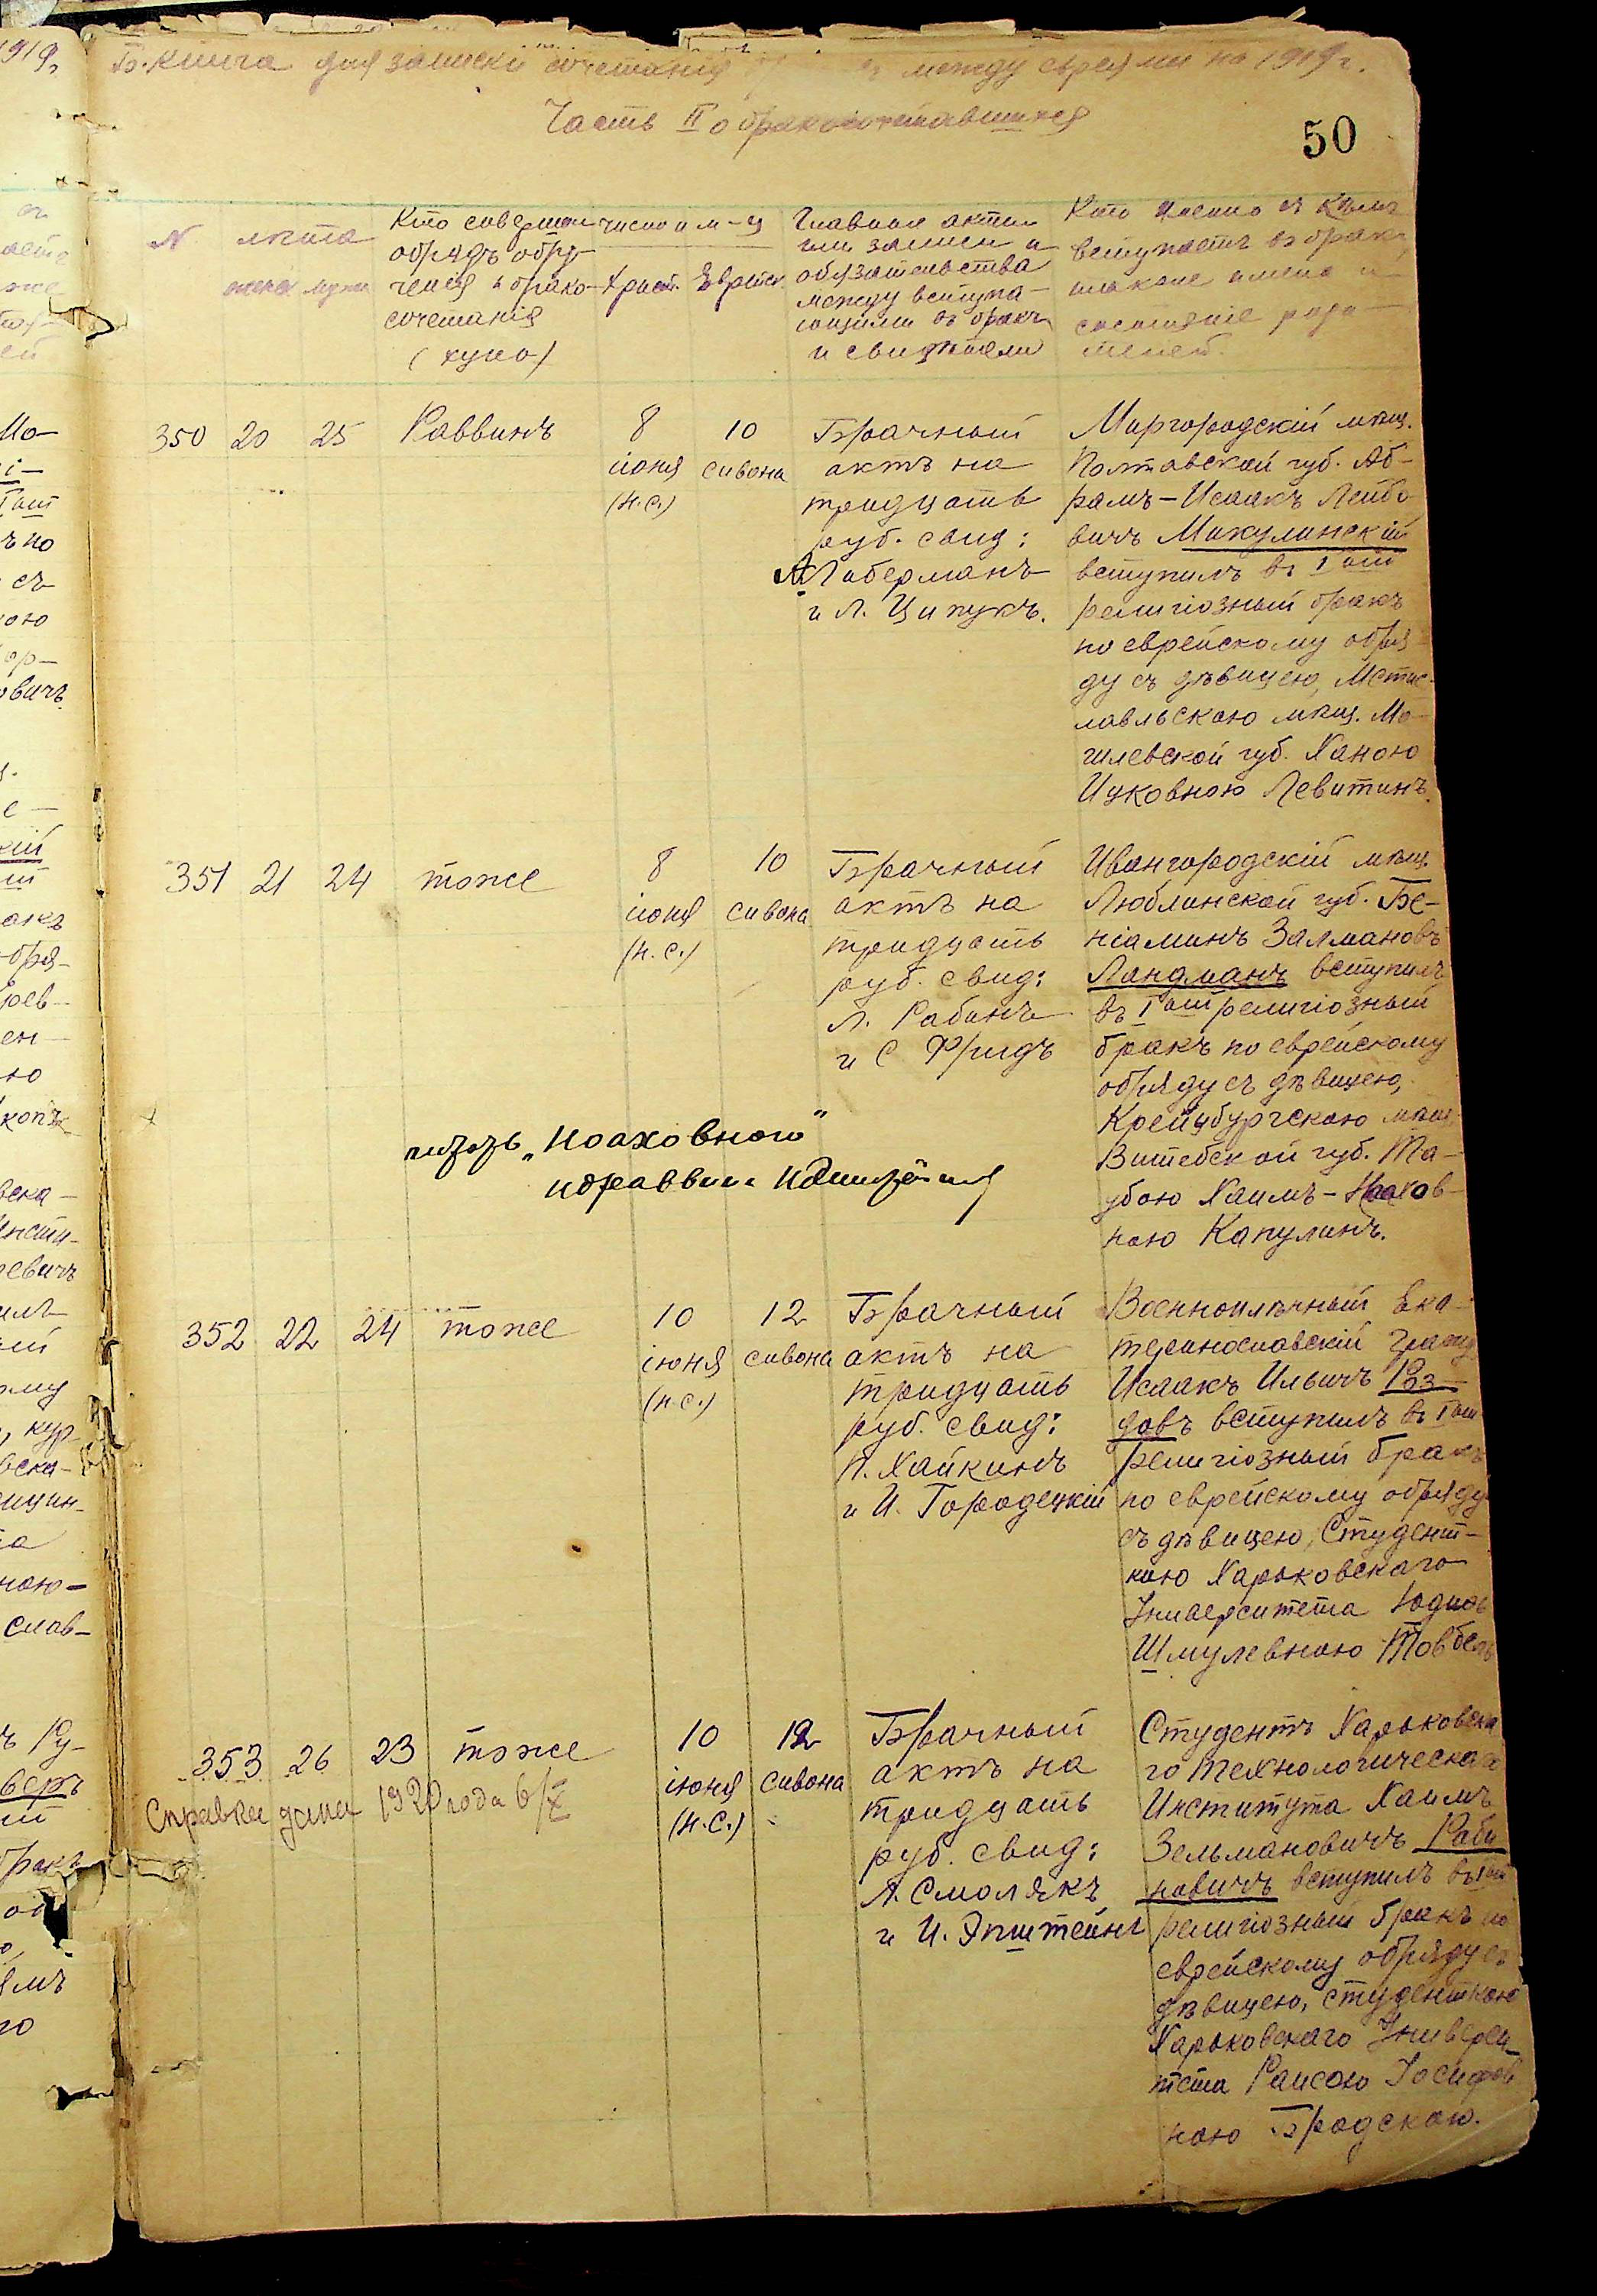 Б. книга для записки сочетания между евреями на 1919 г.
Часть II о бракосочетавшихся
50
N лѣта
жены мужа
Кто совершал
обрядъ обру-
ченія и брако-
сочетанія
(хупа)
число и м-ц
Христ. Еврейск.
Главные акты
или записи и
обязательства
между вступа-
ющими въ бракъ
и свидѣтели
Кто именно съ кѣмъ
вступаетъ въ бракъ
также имена и
состояніе роди-
телей
350 20 25 Раввинъ
8
іюня
(н.с.)
10
сивона
Брачный
актъ на
тридцать
руб. свид:
А Гоберманъ
и Л. Ципукъ.
Миргородскій мѣщ.
Полтавской губ. Аб-
рамъ-Исаакъ Лейбо
вичъ Микулинскій
вступилъ въ Iый
религіозный бракъ
по еврейскому обря-
ду съ дѣвицею, Мстис-
лавльскою мѣщ. Мо-
гилевской губ. Ханою
Ицковною Левитинъ.
351 21 24 тоже
8
іюня
(н.с.)
10
сивона
Брачный
актъ на
тридцать
руб. свид:
Л. Рабинъ
и С Фридъ
Ивангородскій мѣщ.
Люблинской губ. Бе-
ніаминъ Залмановъ
Ландманъ вступилъ
въ Iый религіозный
бракъ по еврейскому
обряду съ дѣвицею,
Крейцбургскою мѣщ.
Витебской губ. Та-
убою Хаимъ-Ноахов-
ною Капулинъ.
„Ноаховною"
352 22 24 тоже
10
іюня
(н.с.)
12
сивона
Брачный
актъ на
тридцать
руб. свид:
П. Хайкинъ
и И. Городецкій
Военноплѣнный Ека-
теринославскій гражд
Исаакъ Ильичъ Роз-
довъ вступилъ въ Iый
религіозный бракъ
по еврейскому обряду
съ дѣвицею, Студент-
кою Харьковскаго
Университета Юдиѳь
Шмулевною Товбель
353 26 23 тоже
Справка дана 1920 года 6/X
10
іюня
(н.с.)
12
сивона
Брачный
актъ на
тридцать
руб. свид:
А. Смолякъ
и И. Эпштейнъ
Студентъ Харьковска
го Технологическаго
Института Хаимъ
Зельмановичъ Раби
новичъ вступилъ въ Iый
религіозный бракъ по
еврейскому обряду съ
дѣвицею, студенткою
Харьковскаго Универси-
тета Раисою Іосифов
ною Бродскою.